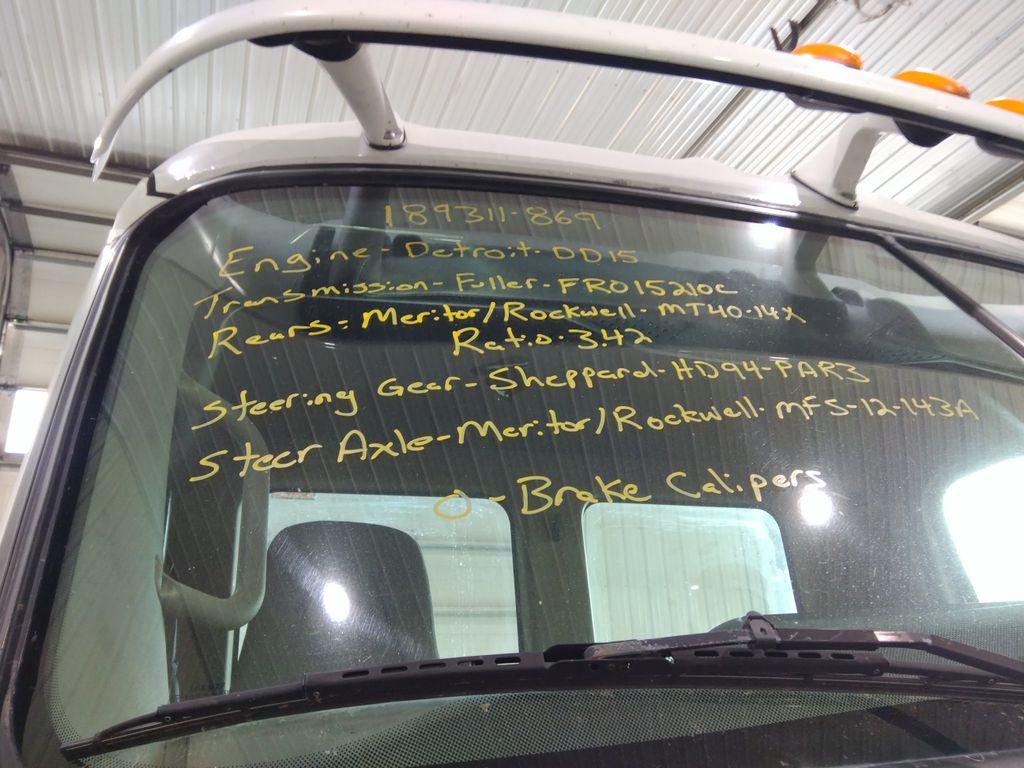 189311-869
Engine-Detroit-DD15
Transmission-Fuller-FRO15210C
Rears-Meritor/Rockwell-MT40-14X
Ratio-342
Steering Gear-Sheppard-HD94-PAR3
Steer Axle-Meritor/Rockwell-MFS-12-143A
0-Brake Calipers